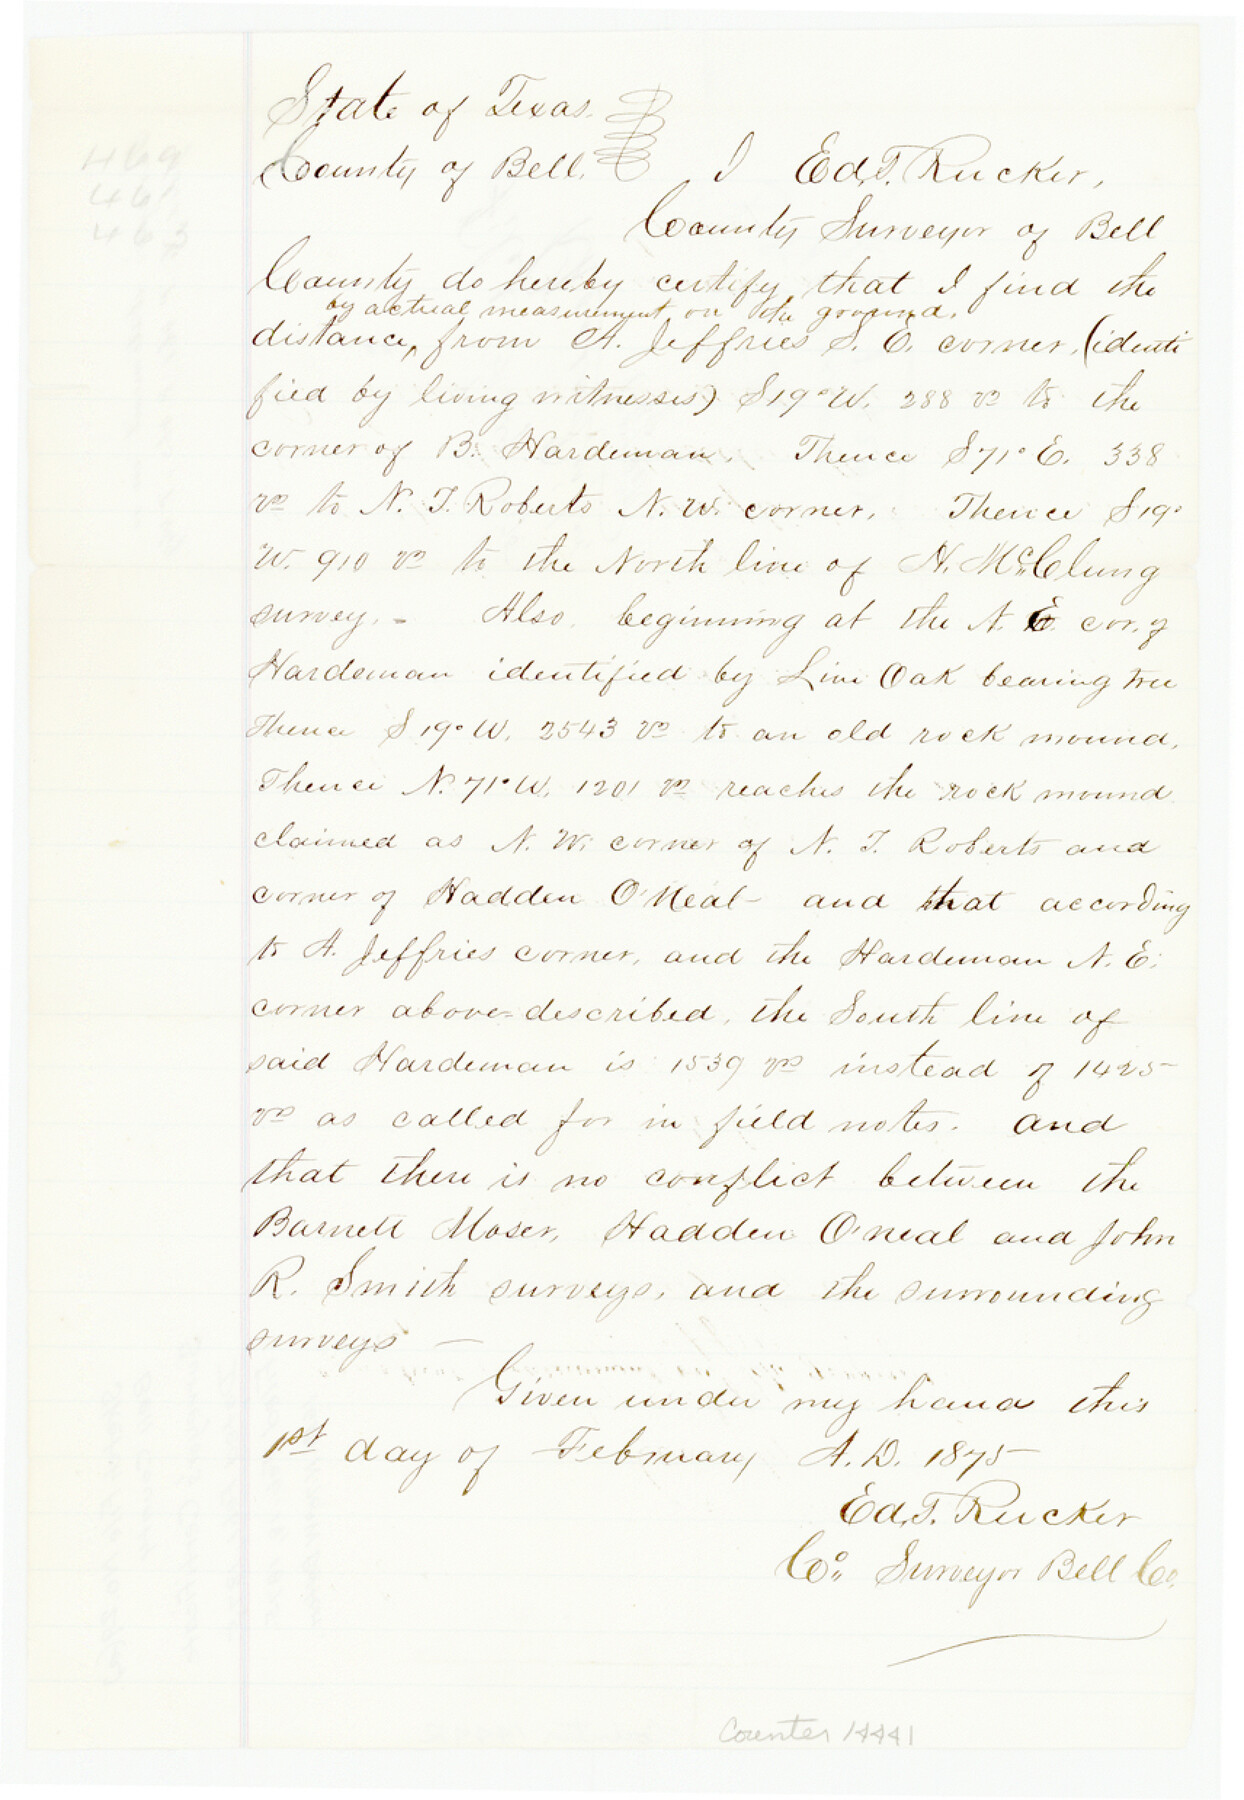 State of Texas.
County of Bell. I Ed, T. Rucker,
County Surveyor of Bell
County do hereby certify, that I find the
by actual measurement, on the ground,
distance, from A. Jeffries S. E. corner, (identi
fied by living witnesses) S 19° W. 288 vs to the
corner of B. Hardeman. Thence S 71° E. 338
vs to N. T. Roberts N. W. corner. Thence S 19°
W. 910 vs to the North line of H. McClung
survey. - Also. beginning at the N. E. cor. of
Hardeman identified by Live Oak bearing tree
Thence S 19° W. 2543 vs to an old rock mound.
Thence N. 71° W. 1201 vs reaches the rock mound
claimed as N. W. corner of N. T. Roberts and
corner of Hadden O'Neal - and that according
to A. Jeffries corner, and the Hardeman N. E.
corner above-described, the South line of
said Hardeman is 1539 vs instead of 1425
vs as called for in field notes. and
that there is no conflict between the
Barnett Moser, Hadden O'neal and John
R. Smith surveys, and the surrounding
surveys —
Given under my hand this
1st day of February A. D. 1875
Ed, T. Rucker
Co. Surveyor Bell Co.
469
461
463
Counter 14441